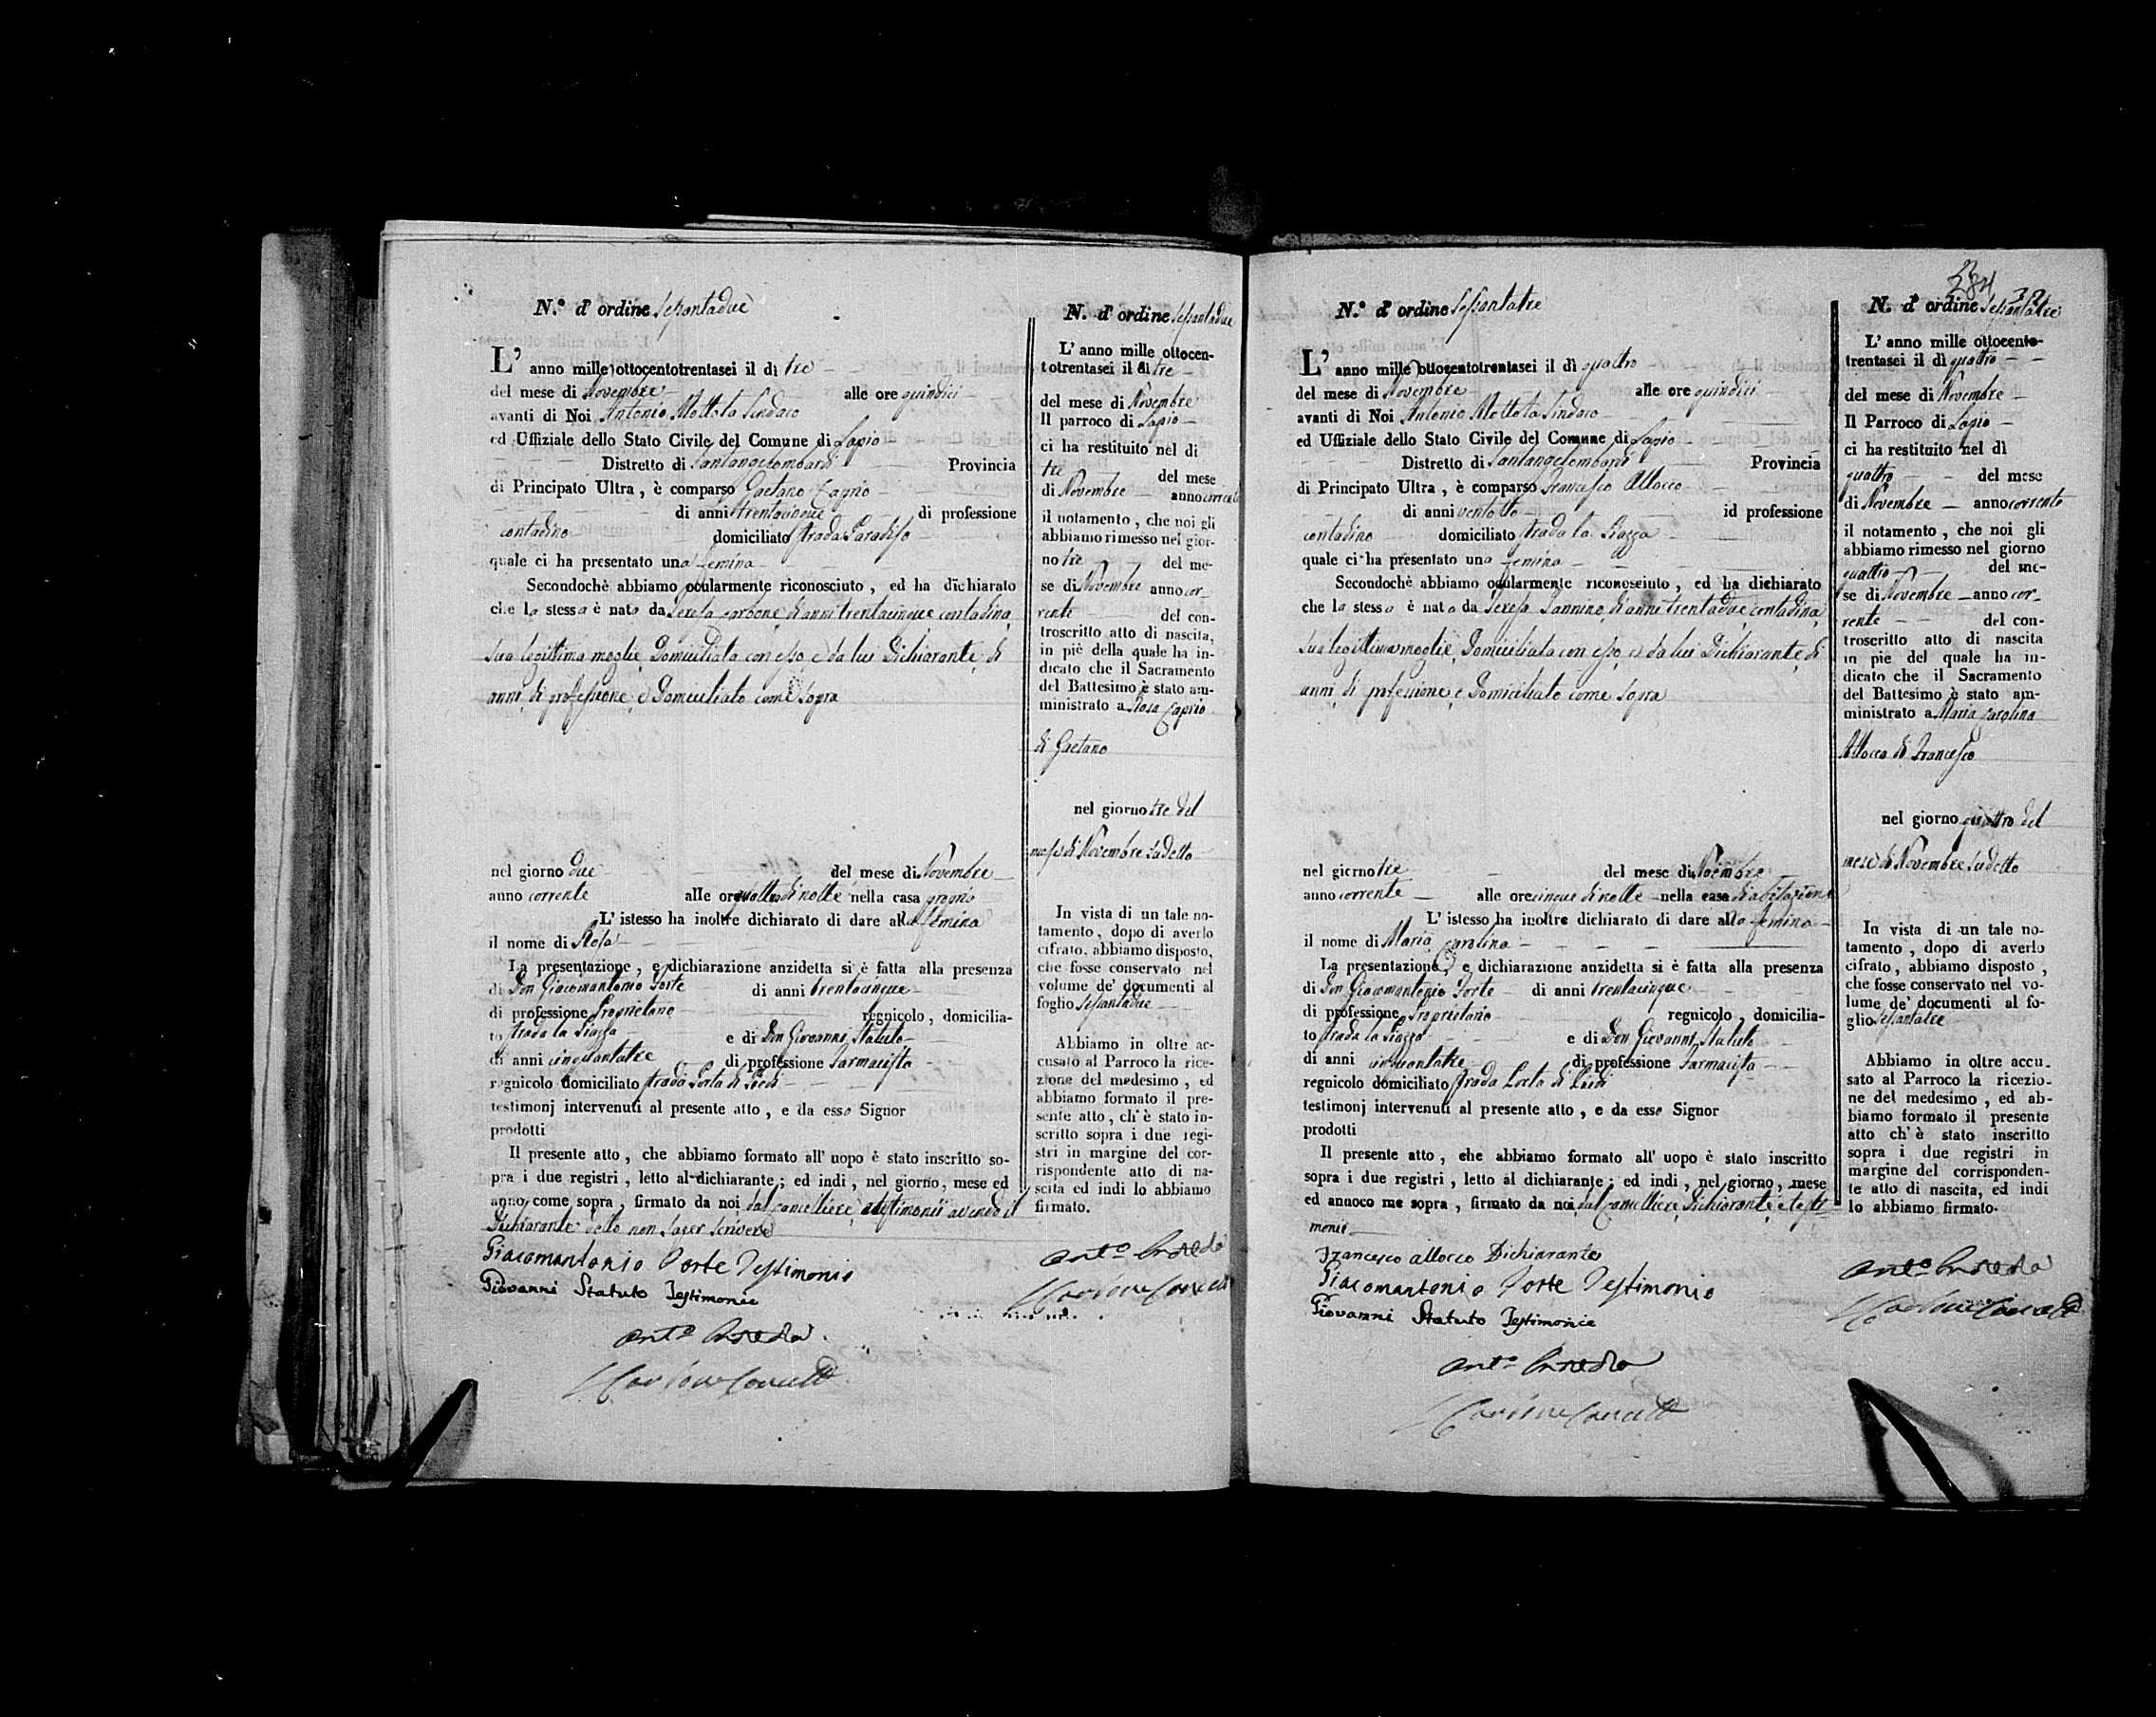 N.° d' ordine Sessantadue
L' anno mille ottocentotrentasei il dì tre
del mese di Novembre alle ore quindici
avanti di Noi Antonio Mottola Sindaco
ed Uffiziale dello Stato Civile del Comune di Lapio
Distretto di Santangelombardi Provincia
di Principato Ultra, è comparso Gaetano Caprio
di anni trentacinque di professione
contadino domiciliato strada Paradiso
quale ci ha presentato una femina
Secondochè abbiamo ocularmente riconosciuto, ed ha dichiarato
che la stessa è nata da Teresa Carbone di anni trentacinque contadina
sua legittima moglie Domiciliata con esso e da lui Dichiarante di
anni, di professione, e Domiciliato come sopra
nel giorno due del mese di Novembre
anno corrente alle ore quattro di notte nella casa propria
L' istesso ha inoltre dichiarato di dare alla femina
il nome di Rosa
La presentazione, e dichiarazione anzidetta si è fatta alla presenza
di Don Giacomantonio Forte di anni trentacinque
di professione Proprietario regnicolo, domicilia-
to strada la Piazza e di Don Giovanni Statuto
di anni cinquantatre di professione Farmacista
regnicolo domiciliato strada Porta di Piedi
testimonj intervenuti al presente atto, e da esso Signor
prodotti
Il presente atto, che abbiamo formato all' uopo è stato inscritto so-
pra i due registri, letto al dichiarante; ed indi, nel giorno, mese ed
anno come sopra, firmato da noi, dal Cancelliere, e testimonii avendo il
Dichiarante detto non saper scrivere
Giacomantonio Forte Testimonio
Giovanni Statuto Testimonio
N. d' ordine Sessantadue
L' anno mille ottocen-
totrentasei il dì tre
del mese di Novembre
Il parroco di Lapio
ci ha restituito nel di
tre del mese
di Novembre anno corrente
il notamento, che noi gli
abbiamo rimesso nel gior-
no tre del me-
se di Novembre anno cor-
rente del con-
troscritto atto di nascita,
in piè della quale ha in-
dicato che il Sacramento
del Battesimo è stato am-
ministrato a Rosa Caprio
di Gaetano
nel giorno tre del
mese di Novembre sudetto
In vista di un tale no-
tamento, dopo di averlo
cifrato, abbiamo disposto,
che fosse conservato nel
volume de' documenti al
foglio Sessantadue
Abbiamo in oltre ac-
cusato al Parroco la rice-
zione del medesimo, ed
abbiamo formato il pre-
sente atto, ch' è stato in-
scritto sopra i due regi-
stri in margine del cor-
rispondente atto di na-
scita ed indi lo abbiamo
firmato.
N.° d' ordine Sessantatre
L' anno mille ottocentotrentasei il dì quattro
del mese di Novembre alle ore quindici
avanti di Noi Antonio Mottola Sindaco
ed Uffiziale dello Stato Civile del Comune di Lapio
Distretto di Santangelombardi Provincia
di Principato Ultra, è comparso Francesco Allocco
di anni ventotto id professione
contadino domiciliato strada la Piazza
quale ci ha presentato una femina
Secondochè abbiamo ocularmente riconosciuto, ed ha dichiarato
che la stessa è nata da Teresa Iannino, di anni trentadue, contadina,
sua legittima moglie Domiciliata con esso, e da lui Dichiarante, di
anni, di professione, e Domiciliato come sopra
nel giorno tre del mese di Novembre
anno corrente alle ore cinque di notte nella casa di abitazione
L' istesso ha inoltre dichiarato di dare alla femina
il nome di Maria Carolina
La presentazione, e dichiarazione anzidetta si è fatta alla presenza
di Don Giacomantonio Forte di anni trentacinque
di professione Proprietario regnicolo, domicilia-
to strada la Piazza e di Don Giovanni Statuto
di anni cinquantatre di professione Farmacista
regnicolo domiciliato strada Porta di Piedi
testimonj intervenuti al presente atto, e da esso Signor
prodotti
Il presente atto, che abbiamo formato all' uopo è stato inscritto
sopra i due registri, letto al dichiarante; ed indi, nel giorno, mese
ed annoco me sopra, firmato da noi, dal Cancelliere, Dichiarante, e testi
monii
Francesco allocco Dichiarante
Giacomantonio Forte Testimonio
Giovanni Statuto Testimonio
284
32
N. d' ordine Sessantatre
L' anno mille ottocento-
trentasei il dì quattro
del mese di Novembre
Il Parroco di Lapio
ci ha restituito nel dì
quattro del mese
di Novembre anno corrente
il notamento, che noi gli
abbiamo rimesso nel giorno
quattro del me-
se di Novembre anno cor-
rente del con-
troscritto atto di nascita
in pie del quale ha in-
dicato che il Sacramento
del Battesimo è stato am-
ministrato a Maria Carolina
Allocco di Francesco
nel giorno quattro del
mese di Novembre sudetto
In vista di un tale no-
tamento, dopo di averlo
cifrato, abbiamo disposto,
che fosse conservato nel vo-
lume de' documenti al fo-
glio Sessantatre
Abbiamo in oltre accu-
sato al Parroco la ricezio-
ne del medesimo, ed ab-
biamo formato il presente
atto ch' è stato inscritto
sopra i due registri in
margine del corrisponden-
te atto di nascita, ed indi
lo abbiamo firmato.